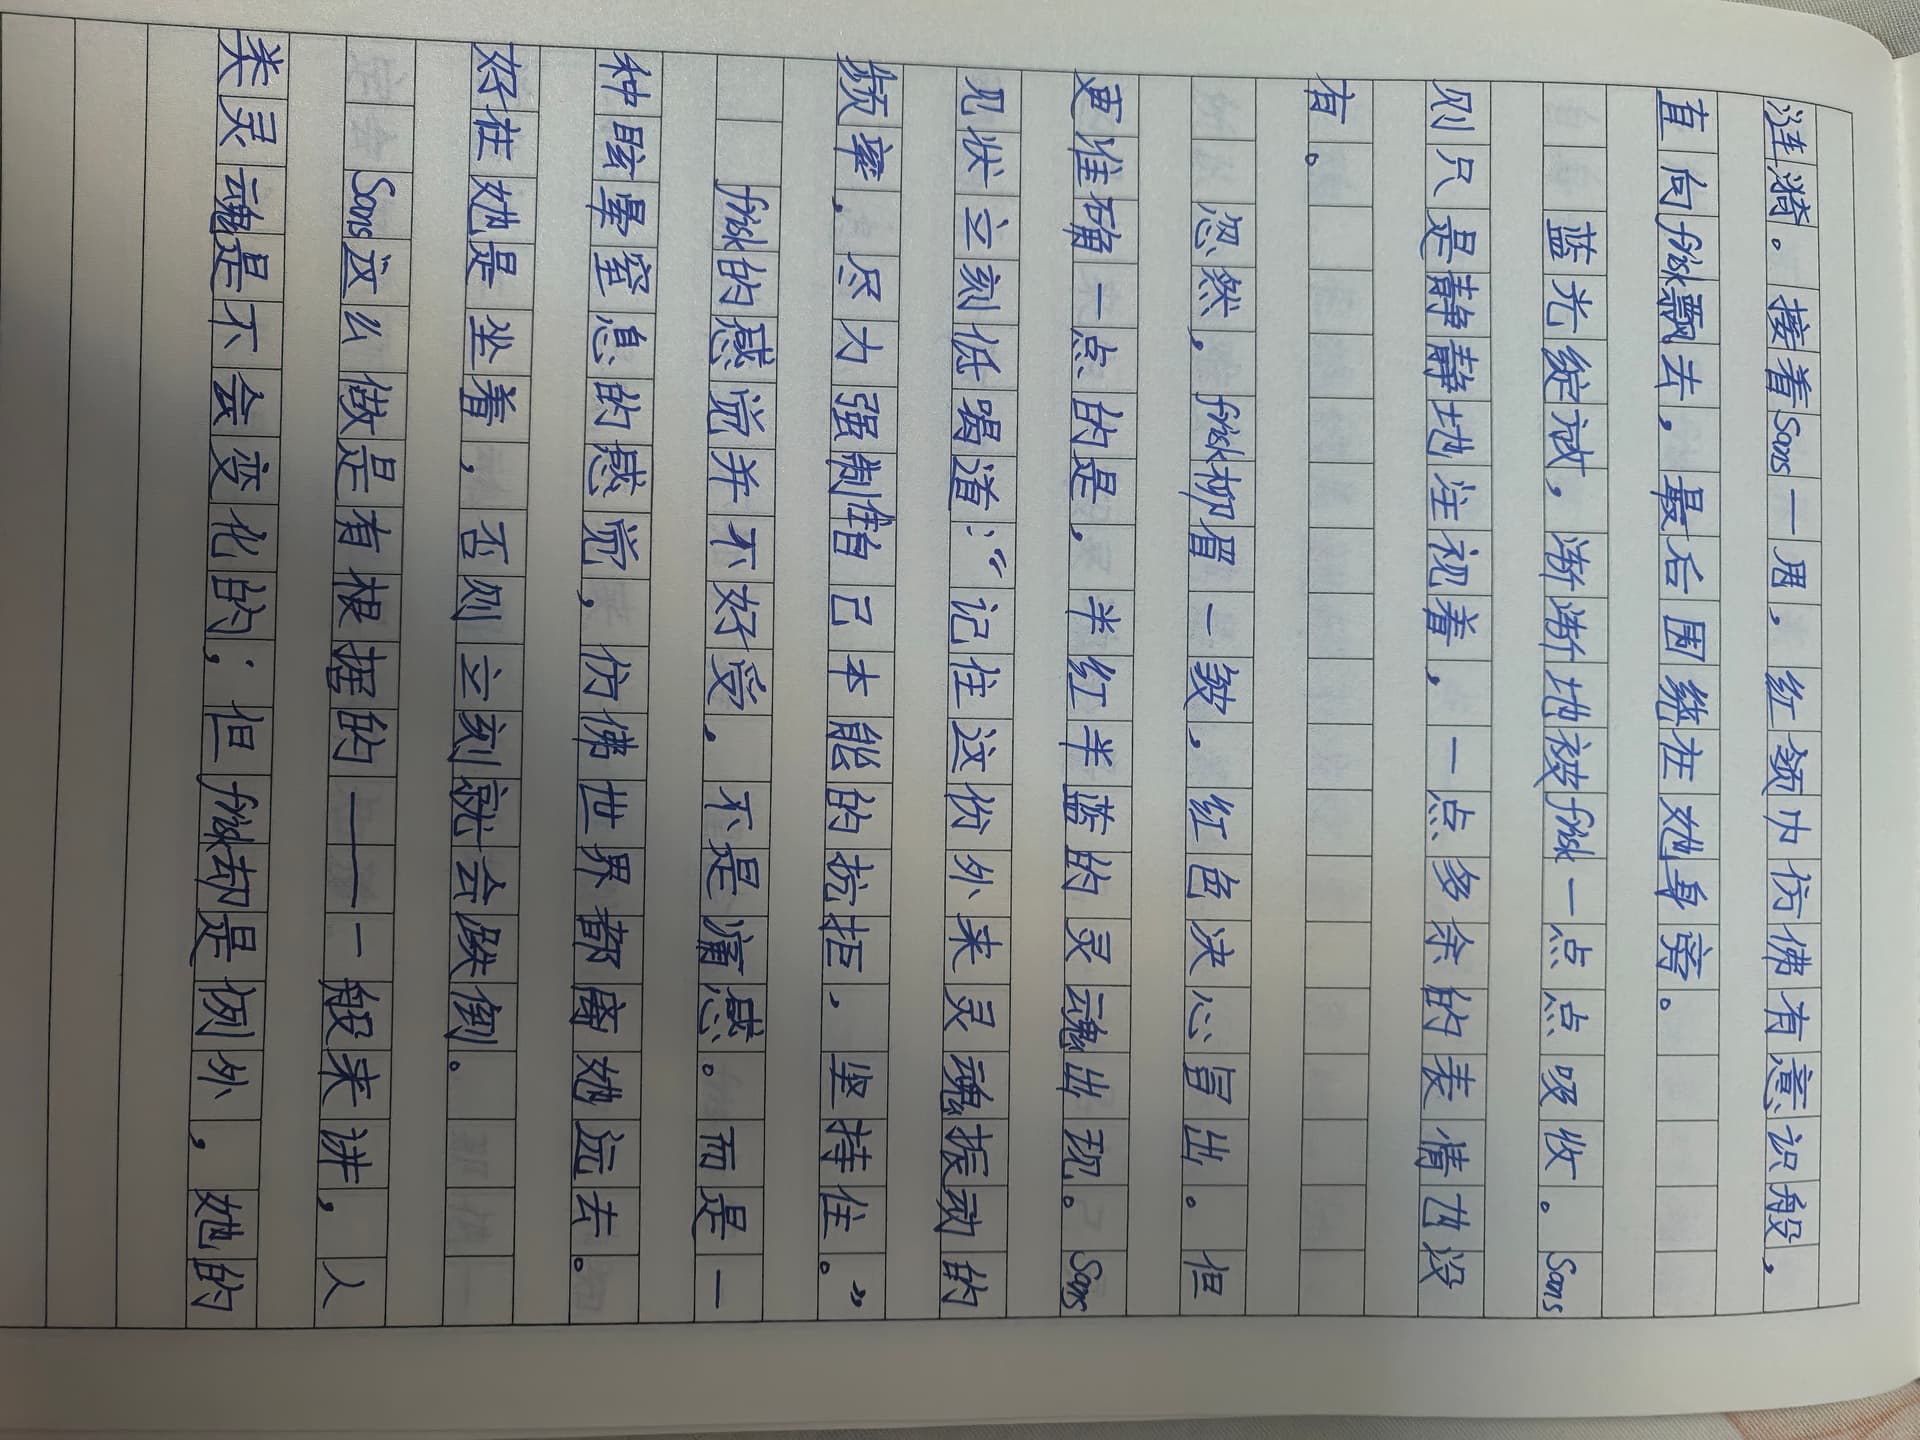 涟漪。接着Sans一甩，红领巾仿佛有意识般，
直向frisk飘去，最后围绕在她身旁。
蓝光绽放，渐渐地被frisk一点点吸收。Sans
则只是静静地注视着，一点多余的表情也没
有。
忽然，frisk柳眉一皱，红色决心冒出。但
更准确一点的是，半红半蓝的灵魂出现。Sans
见状立刻低喝道：“记住这份外来灵魂振动的
频率，尽力强制住自己本能的抗拒，坚持住。”
frisk的感觉并不好受，不是痛感。而是一
种眩晕窒息的感觉，仿佛世界都离她远去。
好在她是坐着，否则立刻就会跌倒。
Sans这么做是有根据的——一般来讲，人
类灵魂是不会变化的；但frisk却是例外，她的